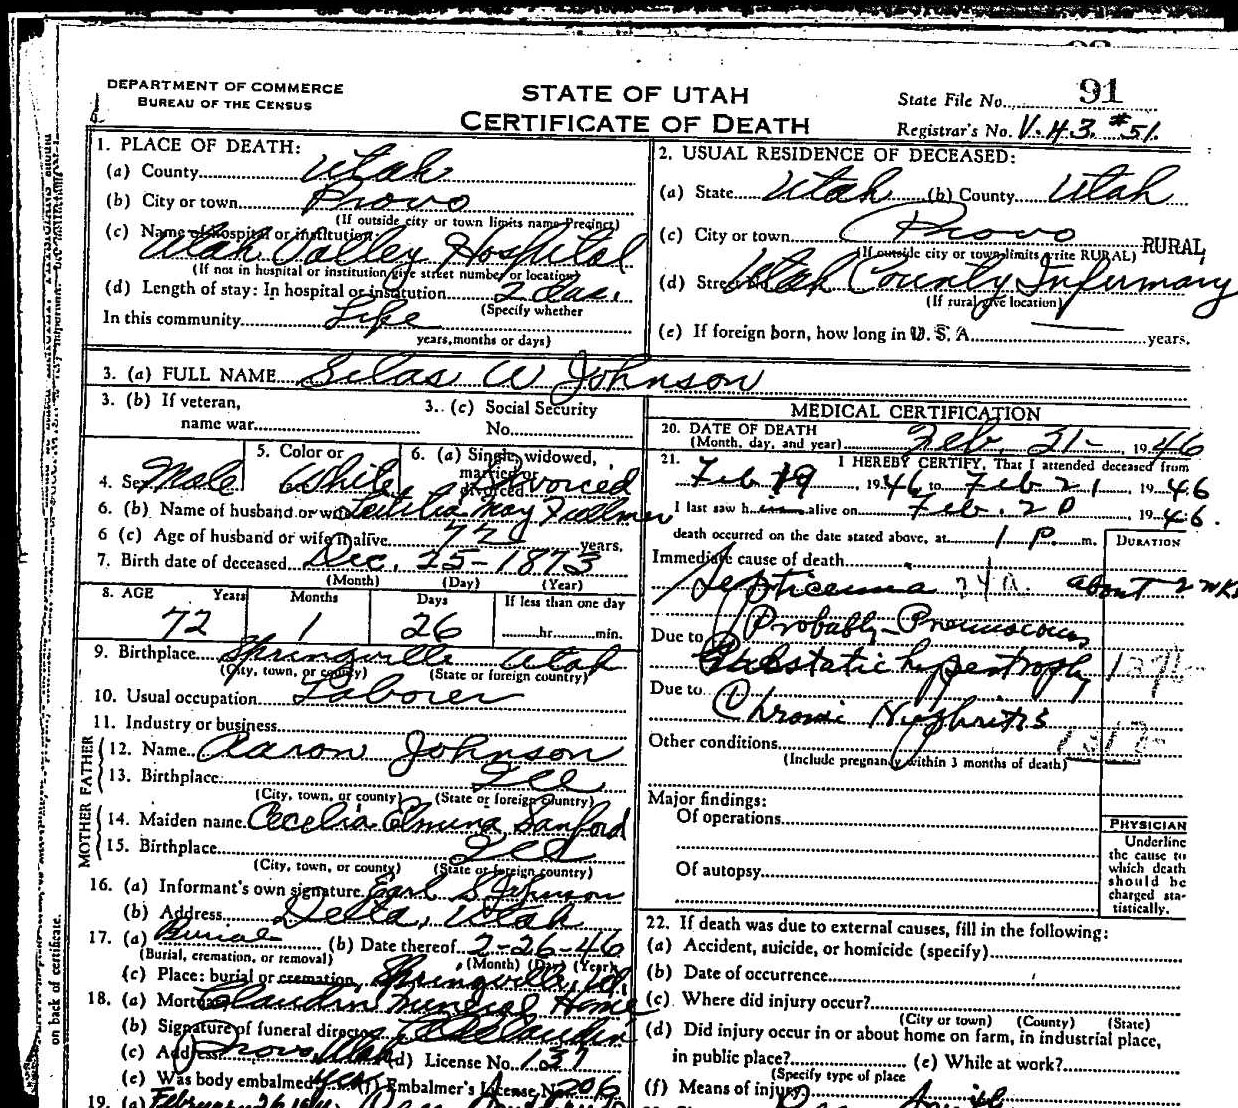 91
DEPARTMENT OF COMMERCE
BUREAU OF THE CENSUS
STATE OF UTAH
CERTIFICATE OF DEATH
State File No. 91
Registrar's No. V.43 #51.
1. PLACE OF DEATH:
(a) County Utah
(b) City or town Provo
(If outside city or town limits name Precinct)
(c) Name of hospital or institution:
Utah Valley Hospital
(If not in hospital or institution give street number or location)
(d) Length of stay: In hospital or institution 2 das.
(Specify whether
In this community Life
years, months or days)
2. USUAL RESIDENCE OF DECEASED:
(a) State Utah (b) County Utah
(c) City or town Provo RURAL
(If outside city or town limits write RURAL)
(d) Street No. Utah County Infirmary
(If rural give location)
(e) If foreign born, how long in U. S. A. years.
3. (a) FULL NAME Silas W Johnson
3. (b) If veteran,
name war
3. (c) Social Security
No.
4. Sex Male
5. Color or
White
6. (a) Single, widowed,
married or
divorced Divorced
6. (b) Name of husband or wife Letitia May Fullmer
6 (c) Age of husband or wife if alive 72 years.
7. Birth date of deceased Dec. 25-1873
(Month) (Day) (Year)
8. AGE Years Months Days If less than one day
72 1 26 hr. min.
9. Birthplace Springville Utah
(City, town, or county) (State or foreign country)
10. Usual occupation Laborer
11. Industry or business
FATHER
12. Name Aaron Johnson
13. Birthplace
(City, town, or county) (State or foreign country)
MOTHER
14. Maiden name Cecelia Elmina Sanford
15. Birthplace
(City, town, or county) (State or foreign country)
16. (a) Informant's own signature Earl S Johnson
(b) Address Delta, Utah
17. (a) Burial (b) Date thereof 2-26-46
(Burial, cremation, or removal) (Month) (Day) (Year)
(c) Place: burial or cremation Springville, Ut.
18. (a) Mortuary Claudin Funeral Home
(b) Signature of funeral director Claudin
(c) Address Provo, Utah (d) License No. 137
(e) Was body embalmed? Yes (f) Embalmer's License No. 206
19. (a) February 26
MEDICAL CERTIFICATION
20. DATE OF DEATH
(Month, day, and year) Feb. 21- 1946
21. I HEREBY CERTIFY, That I attended deceased from
Feb 19, 1946 to Feb 21, 1946
I last saw him alive on Feb. 20 1946.
death occurred on the date stated above, at 1 P. m.
DURATION
Immediate cause of death
Septicemia 24a. about 2 wks
Probably
Due to
Prostatic hypertrophy 137
Due to
Chronic Nephritis
Other conditions
(Include pregnancy within 3 months of death)
Major findings:
Of operations
Of autopsy
PHYSICIAN
Underline
the cause to
which death
should be
charged sta-
tistically.
22. If death was due to external causes, fill in the following:
(a) Accident, suicide, or homicide (specify)
(b) Date of occurrence
(c) Where did injury occur?
(City or town) (County) (State)
(d) Did injury occur in or about home on farm, in industrial place,
in public place? (e) While at work?
(Specify type of place
(f) Means of injury
on back of certificate.